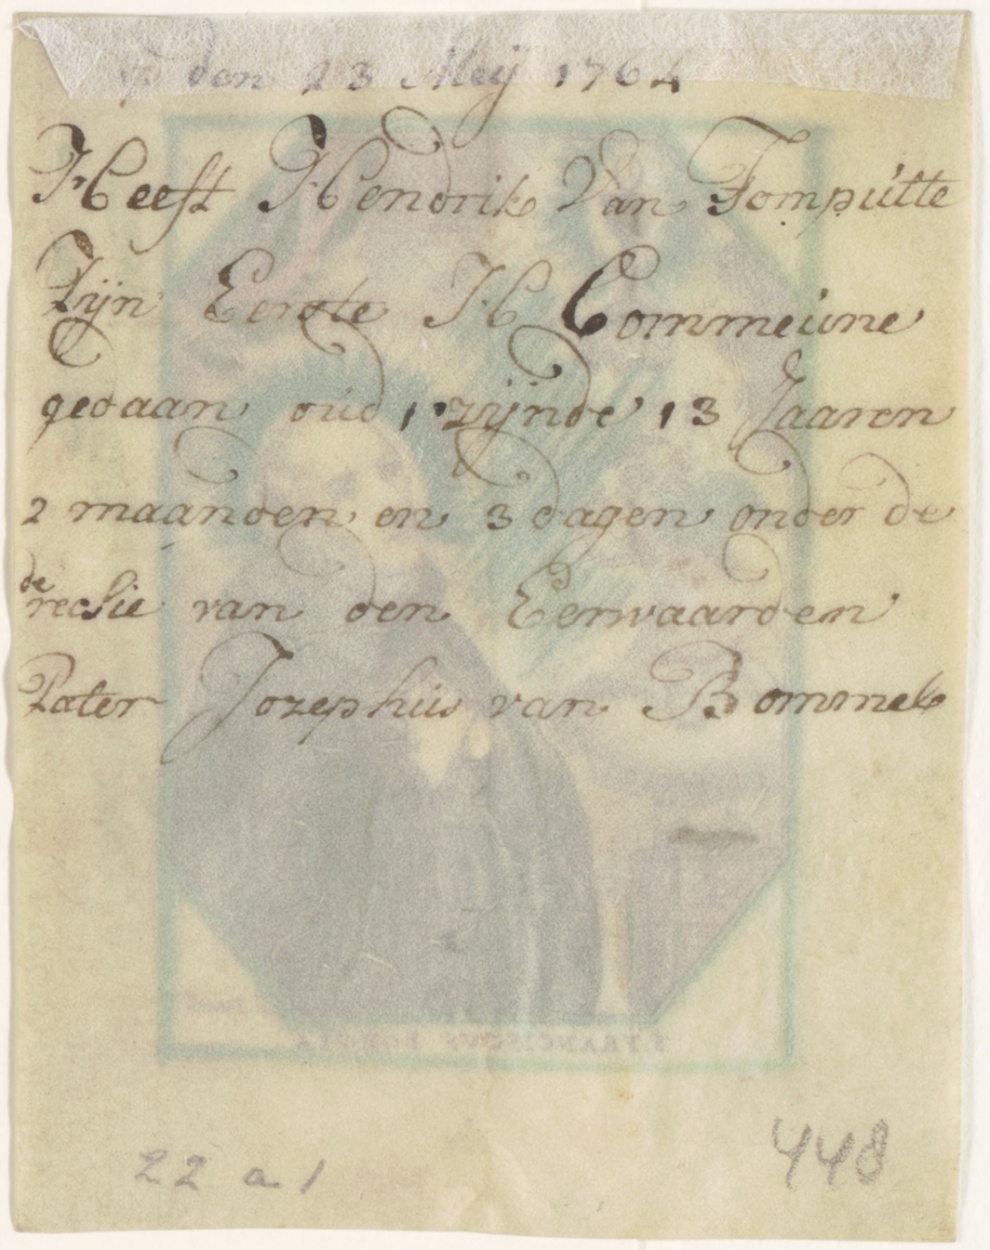 den 23 Meij 1764
Heeft Hendrik Van Tompútte
Zijn Eerste H Commeúne
gedaan oúd zijnde 13 Jaaren
2 maanden en 3 dagen onder de
de
rectie van den Eerwaarden
Pater Jozephús van Bommel
S. FRANCISCVS BORGIA
22 a 1
448